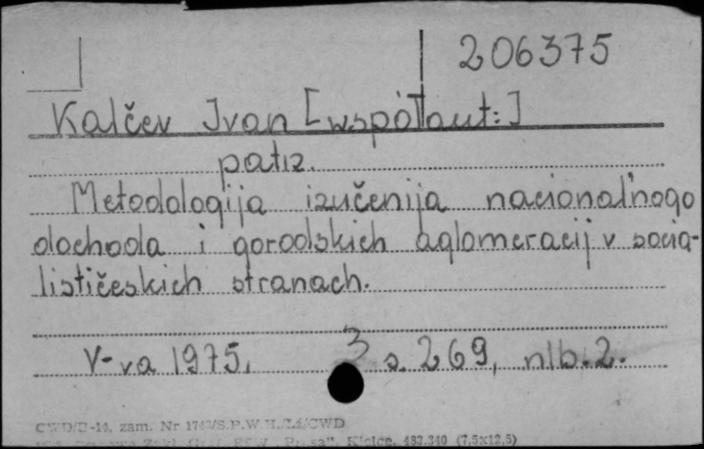 206375
Kalčev Ivan [współaut:]
patrz.
Metodologija izučenija nacional'nogo
dochoda i gorodskich aglomeracij v socia-
lističeskich stranach.
V-va 1975. 3 s. 269, nlb. 2.
CWD/D-14, zam. Nr S.P.W.H. CWD
"Prasa", Kielce. 483.340 (7,5x12,5)